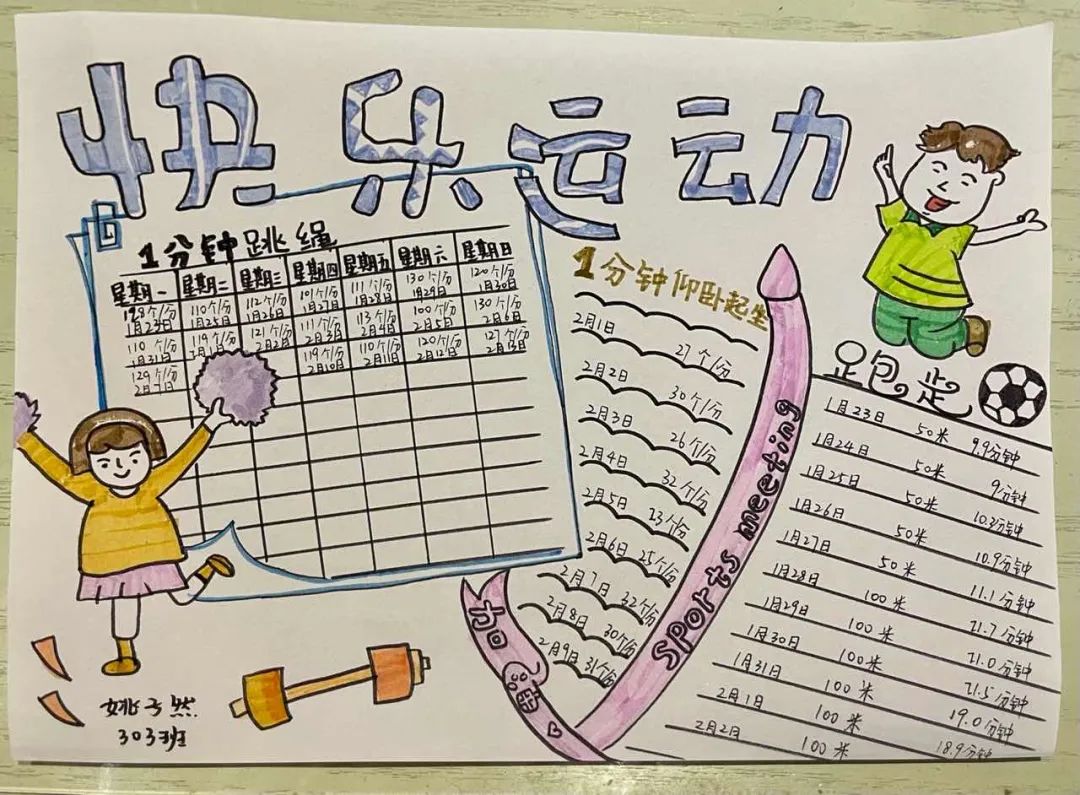 快乐运动
1分钟跳绳
星期一 星期二 星期三 星期四 星期五 星期六 星期日
128个/分 110个/分 112个/分 101个/分 111个/分 130个/分 120个/分
1月25日 1月26日 1月27日 1月28日 1月29日 1月30日
110个/分 119个/分 121个/分 111个/分 113个/分 100个/分 130个/分
1月31日 2月2日 2月3日 2月4日 2月5日 2月6日
129个/分 119个/分 110个/分 120个/分 127个/分
2月7日 2月10日 2月11日 2月12日 2月13日
1分钟仰卧起坐
2月1日 27个/分
2月2日 30个/分
2月3日 26个/分
2月4日 32个/分
2月5日 23个/分
2月6日 25个/分
2月7日 32个/分
2月8日 30个/分
2月9日 31个/分
加油
sports meeting
跑步
1月23日 50米 9.9分钟
1月24日 50米 9分钟
1月25日 50米 10.3分钟
1月26日 50米 10.9分钟
1月27日 50米 11.1分钟
1月28日 100米 21.7分钟
1月29日 100米 21.0分钟
1月30日 100米 21.5分钟
1月31日 100米 19.0分钟
2月1日 100米 18.9分钟
2月2日 100米
姚子然
303班